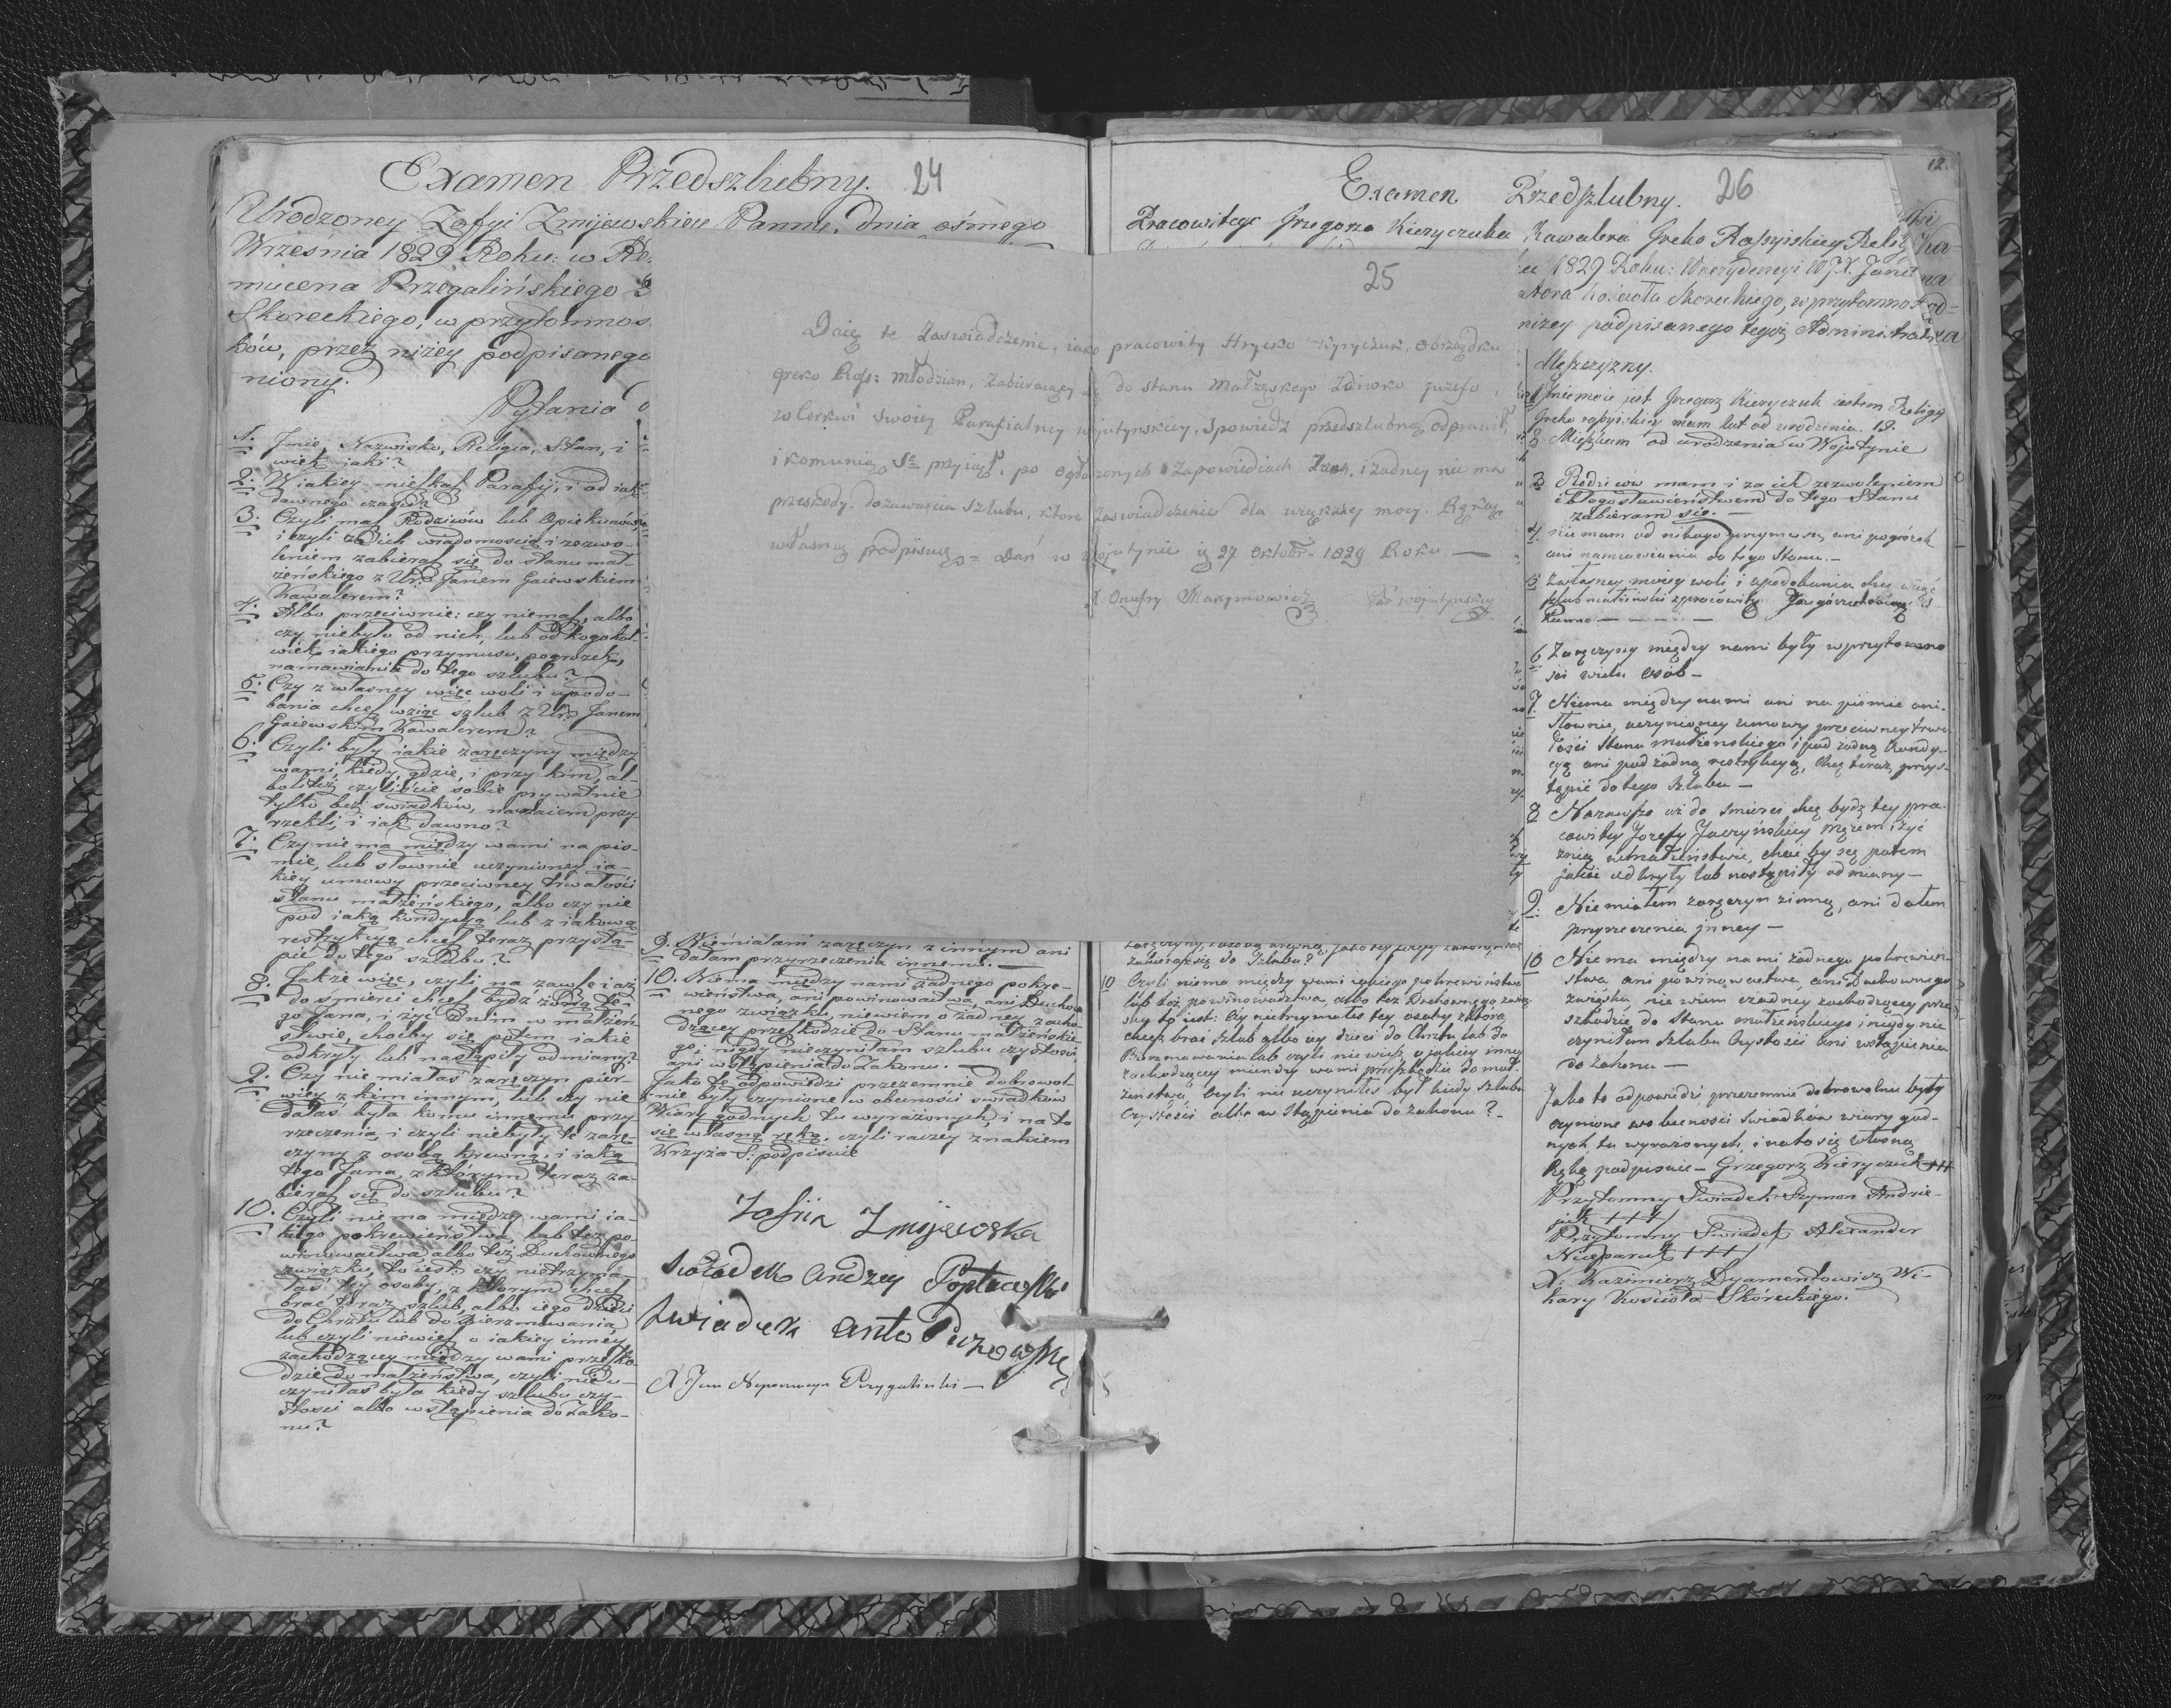 Examen Przedszlubny. 24
Urodzoney Zofyi Zmijewskiey Panny, dnia ośmego
Wrzesnia 1829 Roku: w
mucena Przegalińskiego
Skoreckiego, w przytomnos
ków, przez niżey podpisanego
niony.
Pytania
1. Jmie, Nazwisko, Religia, Stan, i
wiek jaki?
2. W jakiey mieszkasz Parafij, i od jak
dawnego czasu?
3. Czyli masz Rodziców lub Opiekunów,
i czyli za ich wiadomością i zezwo-
leniem zabierasz się do stanu mał-
żeńskiego z Ur: Janem Gaiewskiem
Kawalerem?
4. Albo przeciwnie: czy niemasz, albo
czy niebyło od nich, lub od kogokol-
wiek iakiego przymusu, pogrozek,
namawiania do tego szlubu?
5. Czy z własney więc woli i upodo-
bania chcesz wziąc szlub z Ur: Janem
Gaiewskim Kawalerem?
6. Czyli były iakie zaręczyny między
wami, kiedy, gdzie, i przy kim, al-
bo też czyliście sobie prywatnie
tylko bez swiadków, nawzaiem przy-
rzekli, i iak dawno?
7. Czy nie ma między wami na pis-
mie, lub słownie uczynioney ia-
kiey umowy przeciwney trwałości
stanu małżeńskiego, albo czy nie
pod iaką kondycyą lub z iakową
restrykcyą chcesz teraz przystą-
pić do tego szlubu?
8. Jakże więc, czyli na zawsze i aż
do smierci chcesz bydz żoną te-
go Jana, i żyć z nim w małżeń-
stwie, choćby się potem iakie
odkryły lub nastąpiły odmiany?
9. Czy nie miałaś zaręczyn pier-
wiey z kim innym, lub czy nie
dałaś była komu innemu przy
rzeczenia, i czyli niebyły te zarę-
czyny z osobą krewną, i iaką
tego Jana, z którym teraz za-
bierasz się do szlubu?
10. Czyli nie ma między wami ia-
kiego pokrewieństwa, lub też po-
winowactwa albo też Duchownego
związku, to iest: czy nietrzyma-
łaś tey osoby, z którym chcesz
brać teraz szlub, albo iego dzieci
do Chrztu lub do Bierzmowania,
lub czyli niewiesz o iakiey inney
zachodzącey między wami przeszko-
dzie do małżeństwa, czyli nieu-
czyniłaś była kiedy szlubu czy-
stości albo wstąpienia do Zako-
nu?
9. Niemiałam zaręczyn z innym ani
dałam przyrzeczenia innemu.
10. Niema między nami żadnego pokre-
wieństwa, ani powinowactwa, ani Ducho-
nego związku, niewiem o żadney zacho-
dzącey przeszkodzie do Stanu małżeńskie-
go i nigdy nieczyniłam szlubu czystości
ani wstąpienia do Zakonu.
Jako te odpowiedzi przezemnie dobrowol-
nie były czynione w obecności swiadków
Wiary godnych, tu wyrażonych, i na to
się własną ręką, czyli raczey znakiem
Krzyża S. podpisuię
Zofiia Zmijewska
Swiadek Andrzey
Swiadek
X Jan Nepomucyn Przegaliński
25
Daię te Zaswiadczenie, iako pracowity Hryćko Kiryczuk, obrządku
greko Ross: młodzian, Zabieraiący się do stanu Małżęskego
w Cerkwi swoiey Parafialney wojutynskiey, spowiedź przedszlubną odprawił
i komunią S przyiął, po ogłoszonych Zapowiedziach i żadney nie ma
przeskody do zawarcia szlubu, ktore Zaswiadczenie dla większey mocy Ręką
własną podpisuię = Dań w Wojutynie 27 Oktobr. 1829 Roku
X Onufry Maxymowicz
Examen Przedszlubny. 26
12.
Pracowitego Grzegorza Kieryczuka Kawalera Greko Rossyiskiey Relig
1829 Roku: W rezydencyi W J X. Jana
stora kościoła Skoreckiego, w przytomności
niżey podpisanego tegoż Administratora
zabierasz się do Szlubu?
10 Czyli niema między wami iakiego pokrewieństwa
lub też powinowadztwa, albo też Duchownego zwią-
zku to iest: Czy nietrzymałeś tey osoby z którą
chcesz brać szlub albo iey dzieci do Chrztu lub do
Bierzmowania lub czyli nie wiesz o jakiey inney
zachodzącey miendzy wami przeszkodzie do mał-
żeństwa, Czyli nie uczyniłeś był kiedy szlubu
Czystości albo w Stąpienia do zakonu?
Męszczyzny.
1 Jmie moie jest Grzegorz Kieryczuk iestem Religij
Greko rossyiskiey mam lat od urodzenia. 19.
2. Mieszkam od urodzenia w Wojutynie
3 Rodziców mam i za ich zezwoleniem
i błogosławieństwem do tego Stanu
zabieram się.
4. nie mam od nikogo przymusu, ani pogrózek
ani namawiania do tego Stanu.
5. Z własney moiey woli i upodobania chcę wziąć
szlub małżeński z pracowitą
Panną
6 Zaręczyny między nami były w przytomno
ści wielu osób
7. Niema między nami ani na piśmie ani
słownie, uczynioney umowy przeciwney trwa-
łości Stanu małżenskiego i pod żadną Kondy-
cyą ani pod żadną restrykcyą, chcę teraz przys-
tąpić do tego szlubu
8 Nazawsze aż do śmierci chcę bydz tey pra-
cowitey Jozefy mężem i żyć
z nią w małżeństwie, choć by się potem
jakie odkryły lub nastąpiły odmiany
9. Nie miałem zaręczyn z inną, ani dałem
przyrzeczenia inney
10 Nie ma między nami żadnego pokrewień-
stwa ani powinowactwa, ani Duchownego
związku, nie wiem o żadney zachodzącey prze
szkodzie do Stanu małżeńskiego i nigdy nie
czyniłem Szlubu Czystości ani wstąpienia
do zakonu
Jako te odpowiedzi przezemnie dobrowolnie były
czynione w obecności Swiadków wiary god-
nych, tu wyrażonych, i na to się własną
Ręką podpisuie Grzegorz Kieryczuk +++
Przytomny Swiadek Szymon Andrie-
juk +++
Przytomny Swiadek Alexander
Nieparuk +++
X: Kazimierz Dyamentowicz Wi-
kary Kościoła Skóreckiego.